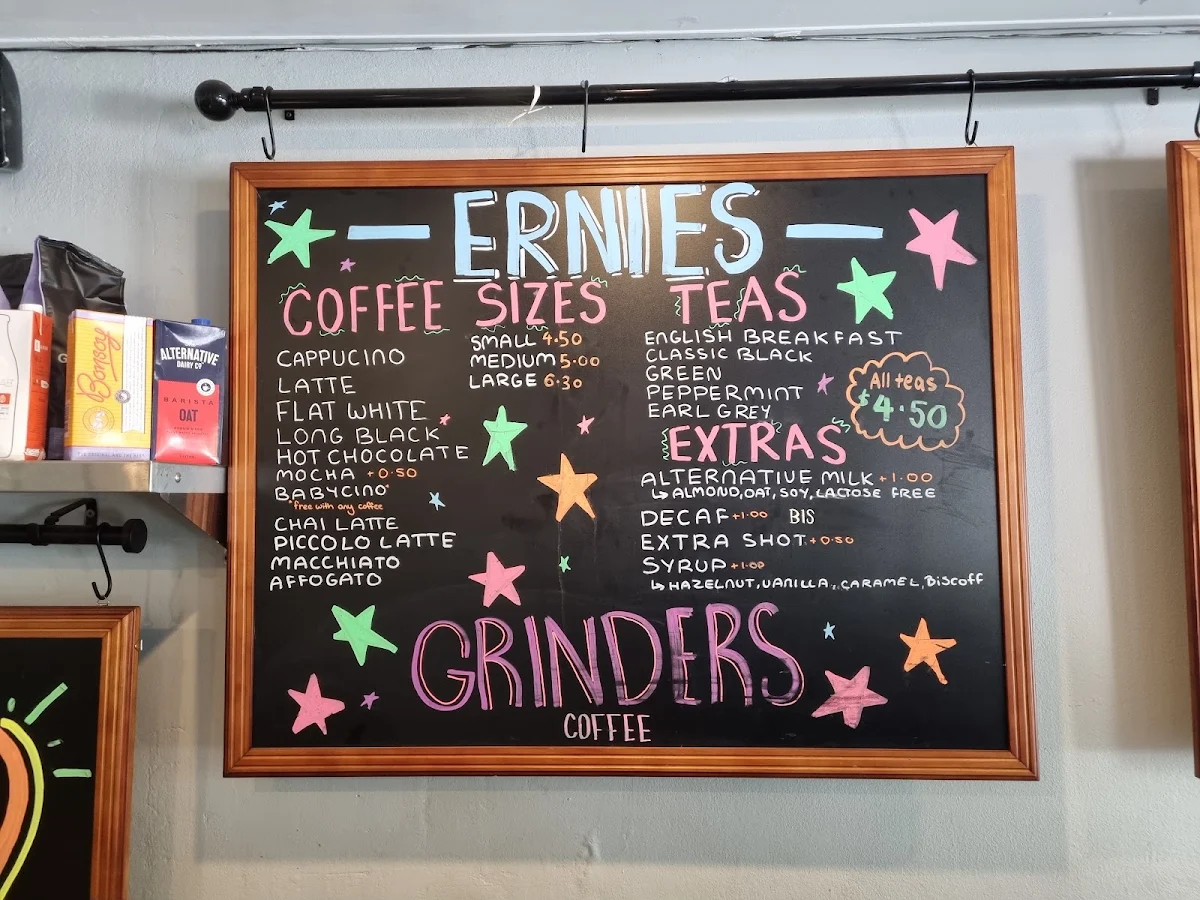 ERNIES
COFFEE
CAPPUCINO
LATTE
FLAT WHITE
LONG BLACK
HOT CHOCOLATE
MOCHA +0.50
BABYCINO*
*free with any coffee
CHAI LATTE
PICCOLO LATTE
MACCHIATO
AFFOGATO
SIZES
SMALL 4.50
MEDIUM 5.00
LARGE 6.30
TEAS
ENGLISH BREAKFAST
CLASSIC BLACK
GREEN
PEPPERMINT
EARL GREY
All teas
$4.50
EXTRAS
ALTERNATIVE MILK +1.00
↳ ALMOND, OAT, SOY, LACTOSE FREE
DECAF +1.00 BIS
EXTRA SHOT +0.50
SYRUP +1.00
↳ HAZELNUT, VANILLA, CARAMEL, BISCOFF
GRINDERS
COFFEE
Bonsoy
ALTERNATIVE
DAIRY CO
BARISTA
OAT